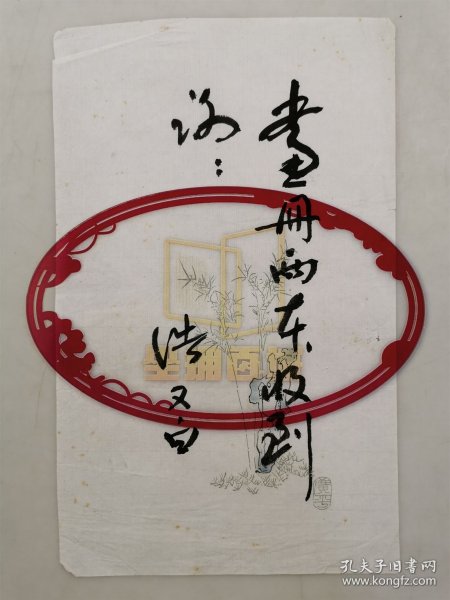 畫册两本收到
谢：
浩又白
孔夫子旧书网
www.kongfz.com